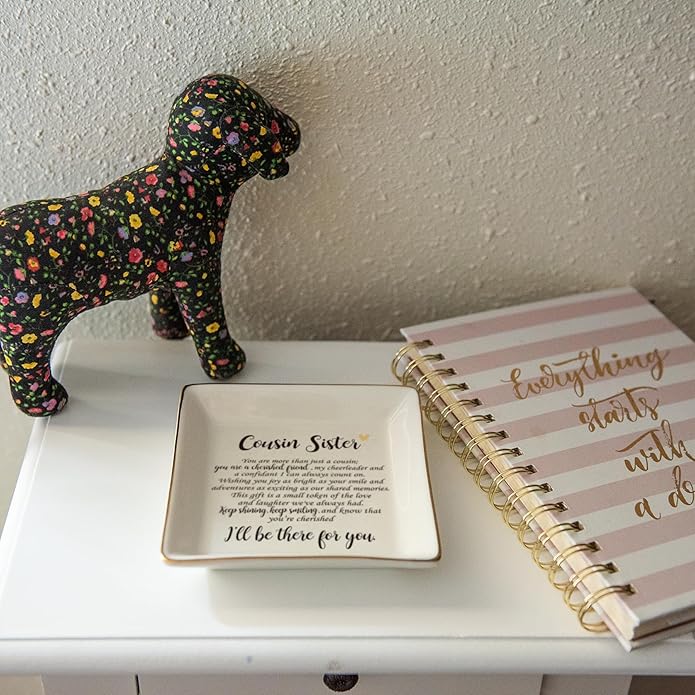 Cousin Sister
You are more than just a cousin;
you are a cherished friend, my cheerleader and
a confidant I can always count on.
Wishing you joy as bright as your smile and
adventures as exciting as our shared memories.
This gift is a small token of the love
and laughter we've always had.
Keep shining, keep smiling, and know that
you're cherished
I'll be there for you.
Everything
starts
with
a